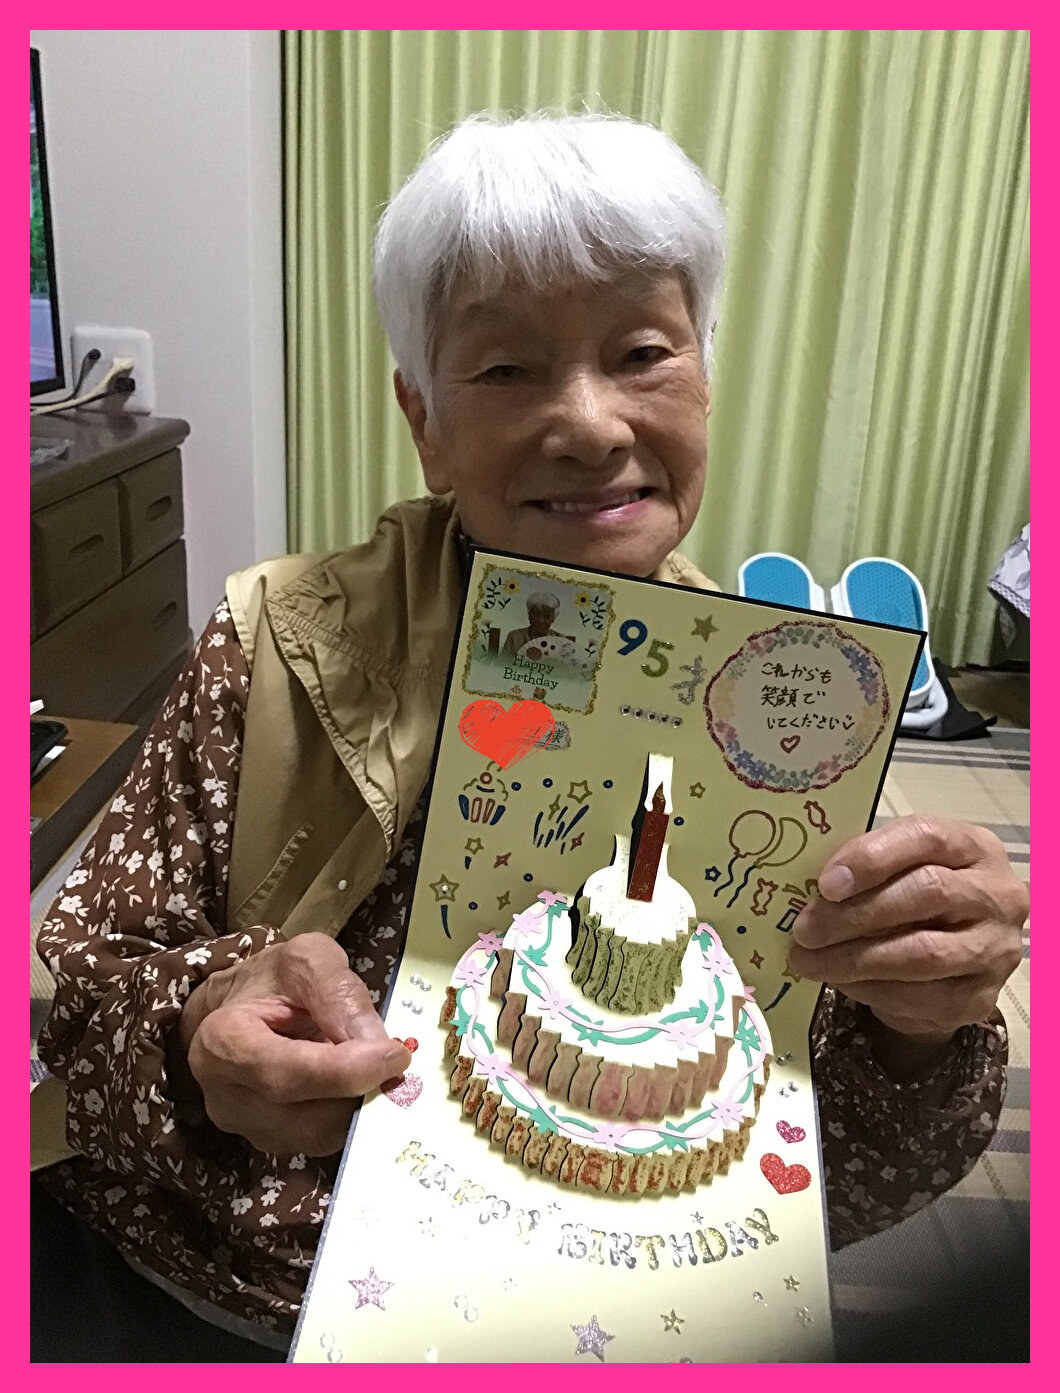 Happy
Birthday
95才
これからも
笑顔で
いてください
様
HAPPY BIRTHDAY